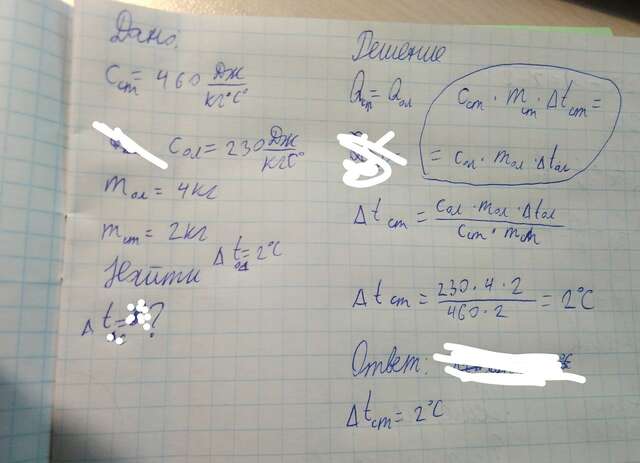 Дано:
Cст = 460 Дж/кг°C
Cол = 230 Дж/кг°C
mол = 4 кг
mст = 2 кг
Δtол = 2°C
Найти
Δt = ?
Решение
Qст = Qол
Cст · mст · Δtст =
= Cол · mол · Δtол
Δtст = Cол · mол · Δtол / Cст · mст
Δtст = 230 · 4 · 2 / 460 · 2 = 2°C
Ответ:
Δtст = 2°C